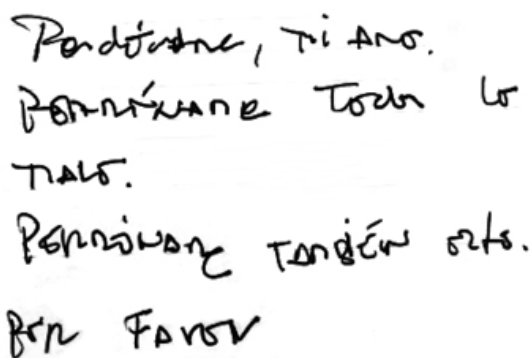 Perdóname, mi amo.
Perdóname todo lo
malo.
Perdóname también esto.
Por favor